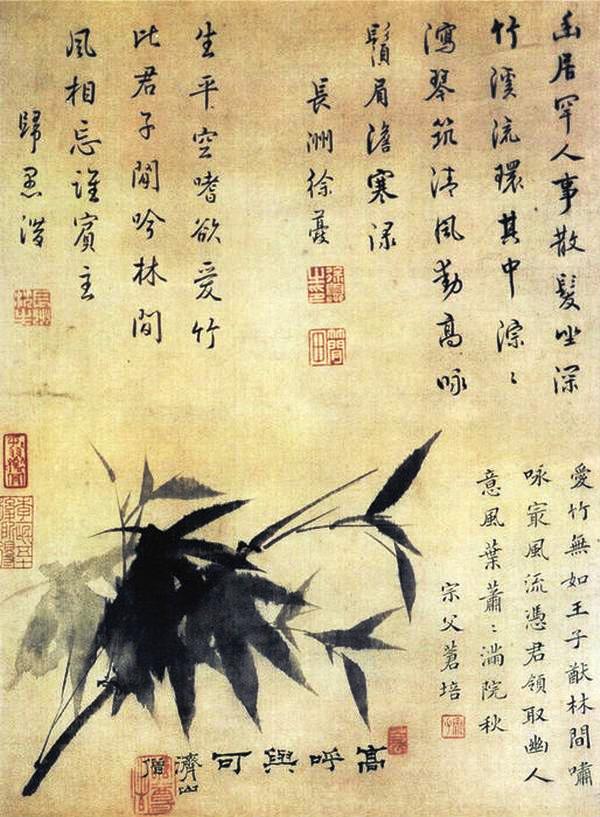 幽居罕人事散髮坐深
竹溪流環其中淙〻
瀉琴筑清風動高咏
鬚眉澹寒渌
長洲徐夔
生平空嗜欲愛竹
此君子閒吟林間
風相忘誰賓主
歸愚潛
愛竹無如王子猷林間嘯
咏㝡風流憑君領取幽人
意風葉蕭〻滿院秋
宗父蒼培
高呼與可
濟山僧